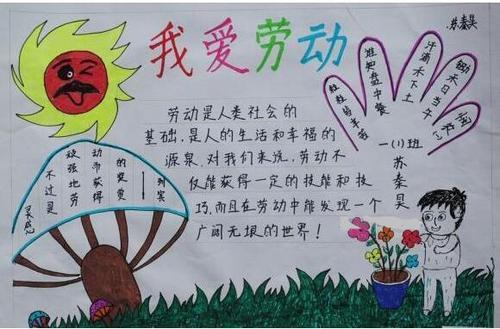 我爱劳动
苏秦昊
锄禾日当午
汗滴禾下土
谁知盘中餐
粒粒皆辛苦
劳动是人类社会的
基础,是人的生活和幸福的
源泉,对我们来说,劳动不
仅能获得一定的技能和技
巧,而且在劳动中能发现一个
广阔无垠的世界!
一(1)班
苏秦昊
灵感
不过是
顽强地劳
动而获得
的奖赏
——列宾